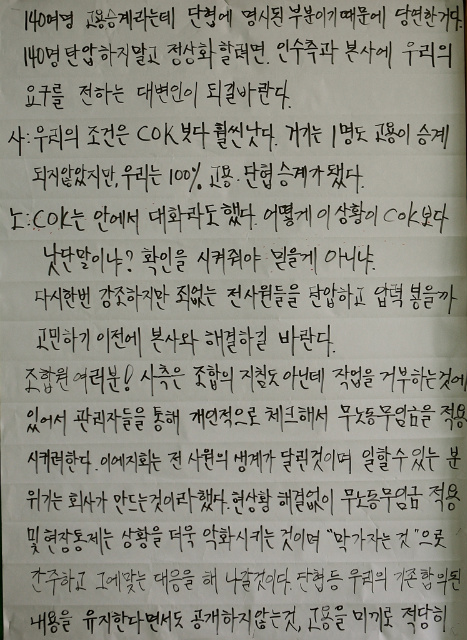 140여명 고용승계라는데 단협에 명시된 부분이기때문에 당연한거다.
140명 탄압하지말고 정상화 할려면. 인수측과 본사에 우리의
요구를 전하는 대변인이 되길바란다.
사: 우리의 조건은 COK보다 훨씬낫다. 거기는 1명도 고용이 승계
되지않았지만, 우리는 100% 고용·단협승계가 됐다.
노: COK는 안에서 대화라도 했다. 어떻게 이 상황이 COK보다
낫단말이냐? 확인을 시켜줘야 믿을게 아니냐.
다시한번 강조하지만 죄없는 전사원들을 탄압하고 압력 넣을까
고민하기 이전에 본사와 해결하길 바란다.
조합원 여러분! 사측은 조합의 지침도 아닌데 작업을 거부하는것에
있어서 관리자들을 통해 개인적으로 체크해서 무노동무임금을 적용
시키려한다. 이에지회는 전 사원의 생계가 달린것이며 일할수 있는 분
위기는 회사가 만드는것이라했다. 현상황 해결없이 무노동무임금 적용
및 현장통제는 상황을 더욱 악화시키는 것이며 "막가자는 것"으로
간주하고 그에맞는 대응을 해 나갈것이다. 단협등 우리의 기존합의된
내용을 유지한다면서도 공개하지않는것, 고용을 미끼로 적당히